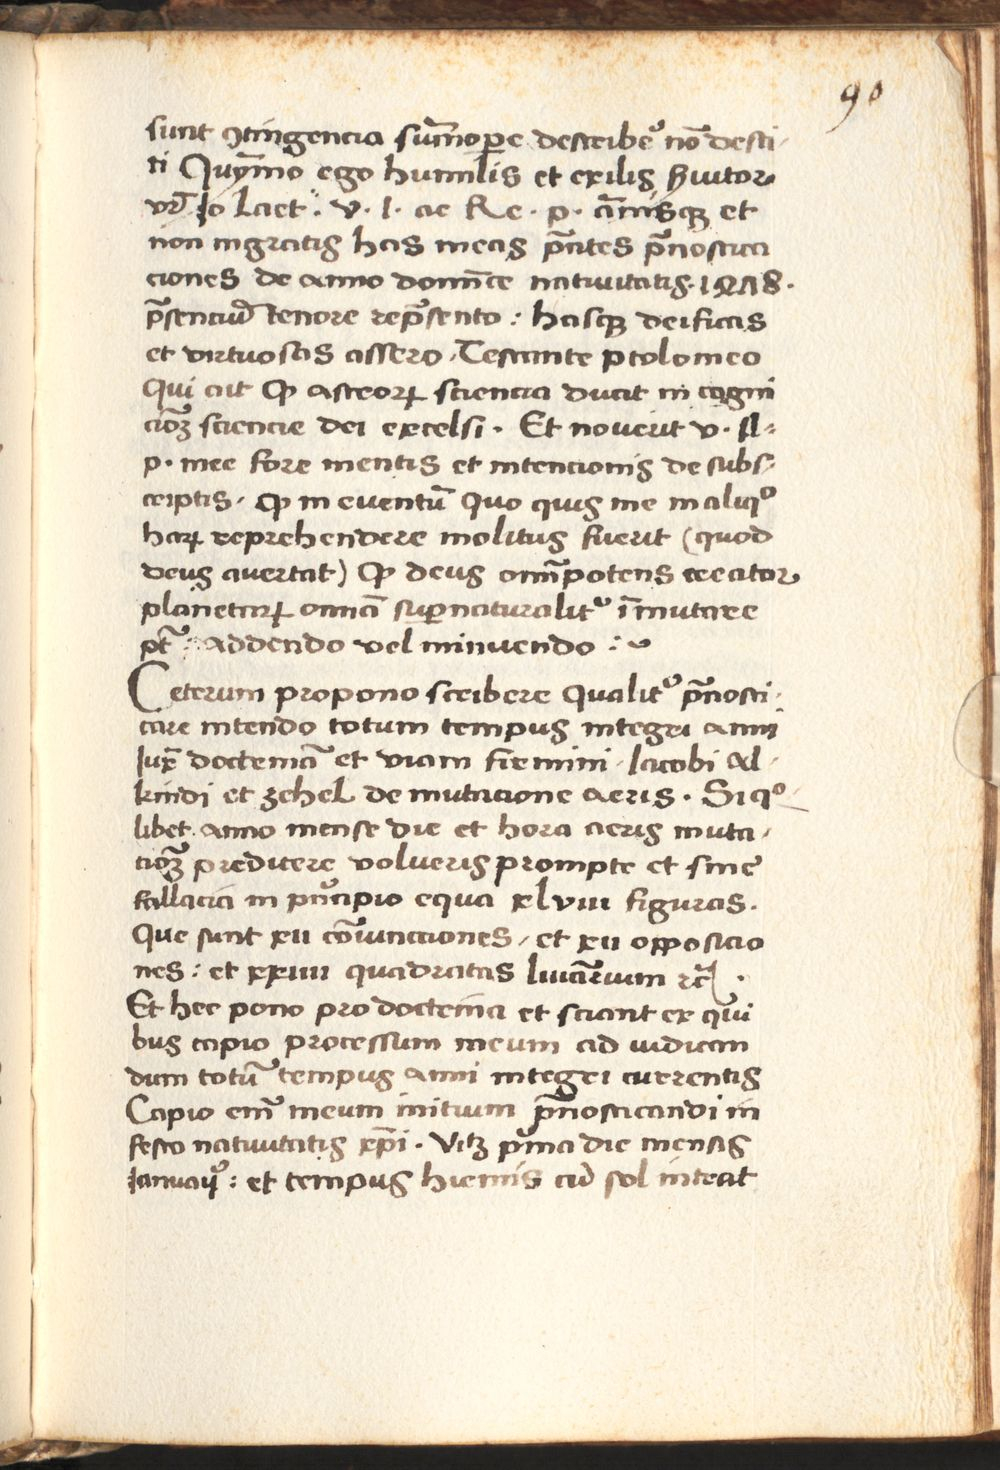 90
sunt ꝯtingencia sum̄oꝑe describeᷣ nō desti-
ti Quȳmo ego humilis et exilis ẜuitor
vr̄ Jo Laet. v. I. ac Re. p. am̄isqꝫ et
non ingratis has meas p̄ntes p̄nostica
ciones de anno domīce natiuitatis. 1478.
p̄senciū tenore rep̄sento : hasqꝫ deificas
et virtuosas assero, Testante ptolomeo
Qui ait ꝙ astrorꝝ sciencia ducit in cogni
cōꝫ sciencie dei excelsi. Et noverit v.
p. mee fore mentis et intencionis de subs-
criptis, ꝙ in eventū quo quis me in aliqͦ
harꝝ reprehendere molitus fuerit (quod
deus avertat) ꝙ deus om̄ipotens creator
planetarꝝ omnia suꝑnaturalitᷣ īmutare
pt̄ : addendo vel minuendo :
Ceterum propono scribere qualitᷣ p̄nosti-
care intendo totum tempus integri anni
Iux̄ doctrinā et viam firmini. Iacobi Al-
kindi et zehel de mutacione aeris. Si qͦ-
libet anno mense die et hora aeris muta-
cōꝫ predicere volueris prompte et sine
fallacia in pͥncipio equa xlviii figuras.
Que sunt xii cōiunctiones, et xii opposicio
nes : et xxiiii quadratas luīarium ꝛc̄.
Et hec pono pro doctrina et sciant ex qui
bus capio processum meum ad iudican
dum totū tempus anni integri currentis
Capio enī meum initium p̄nosticandi in
festo natiuitatis xp̄i. Vitꝫ pͥma die mensis
Ianuaij : et tempus hiemis cū sol intrat